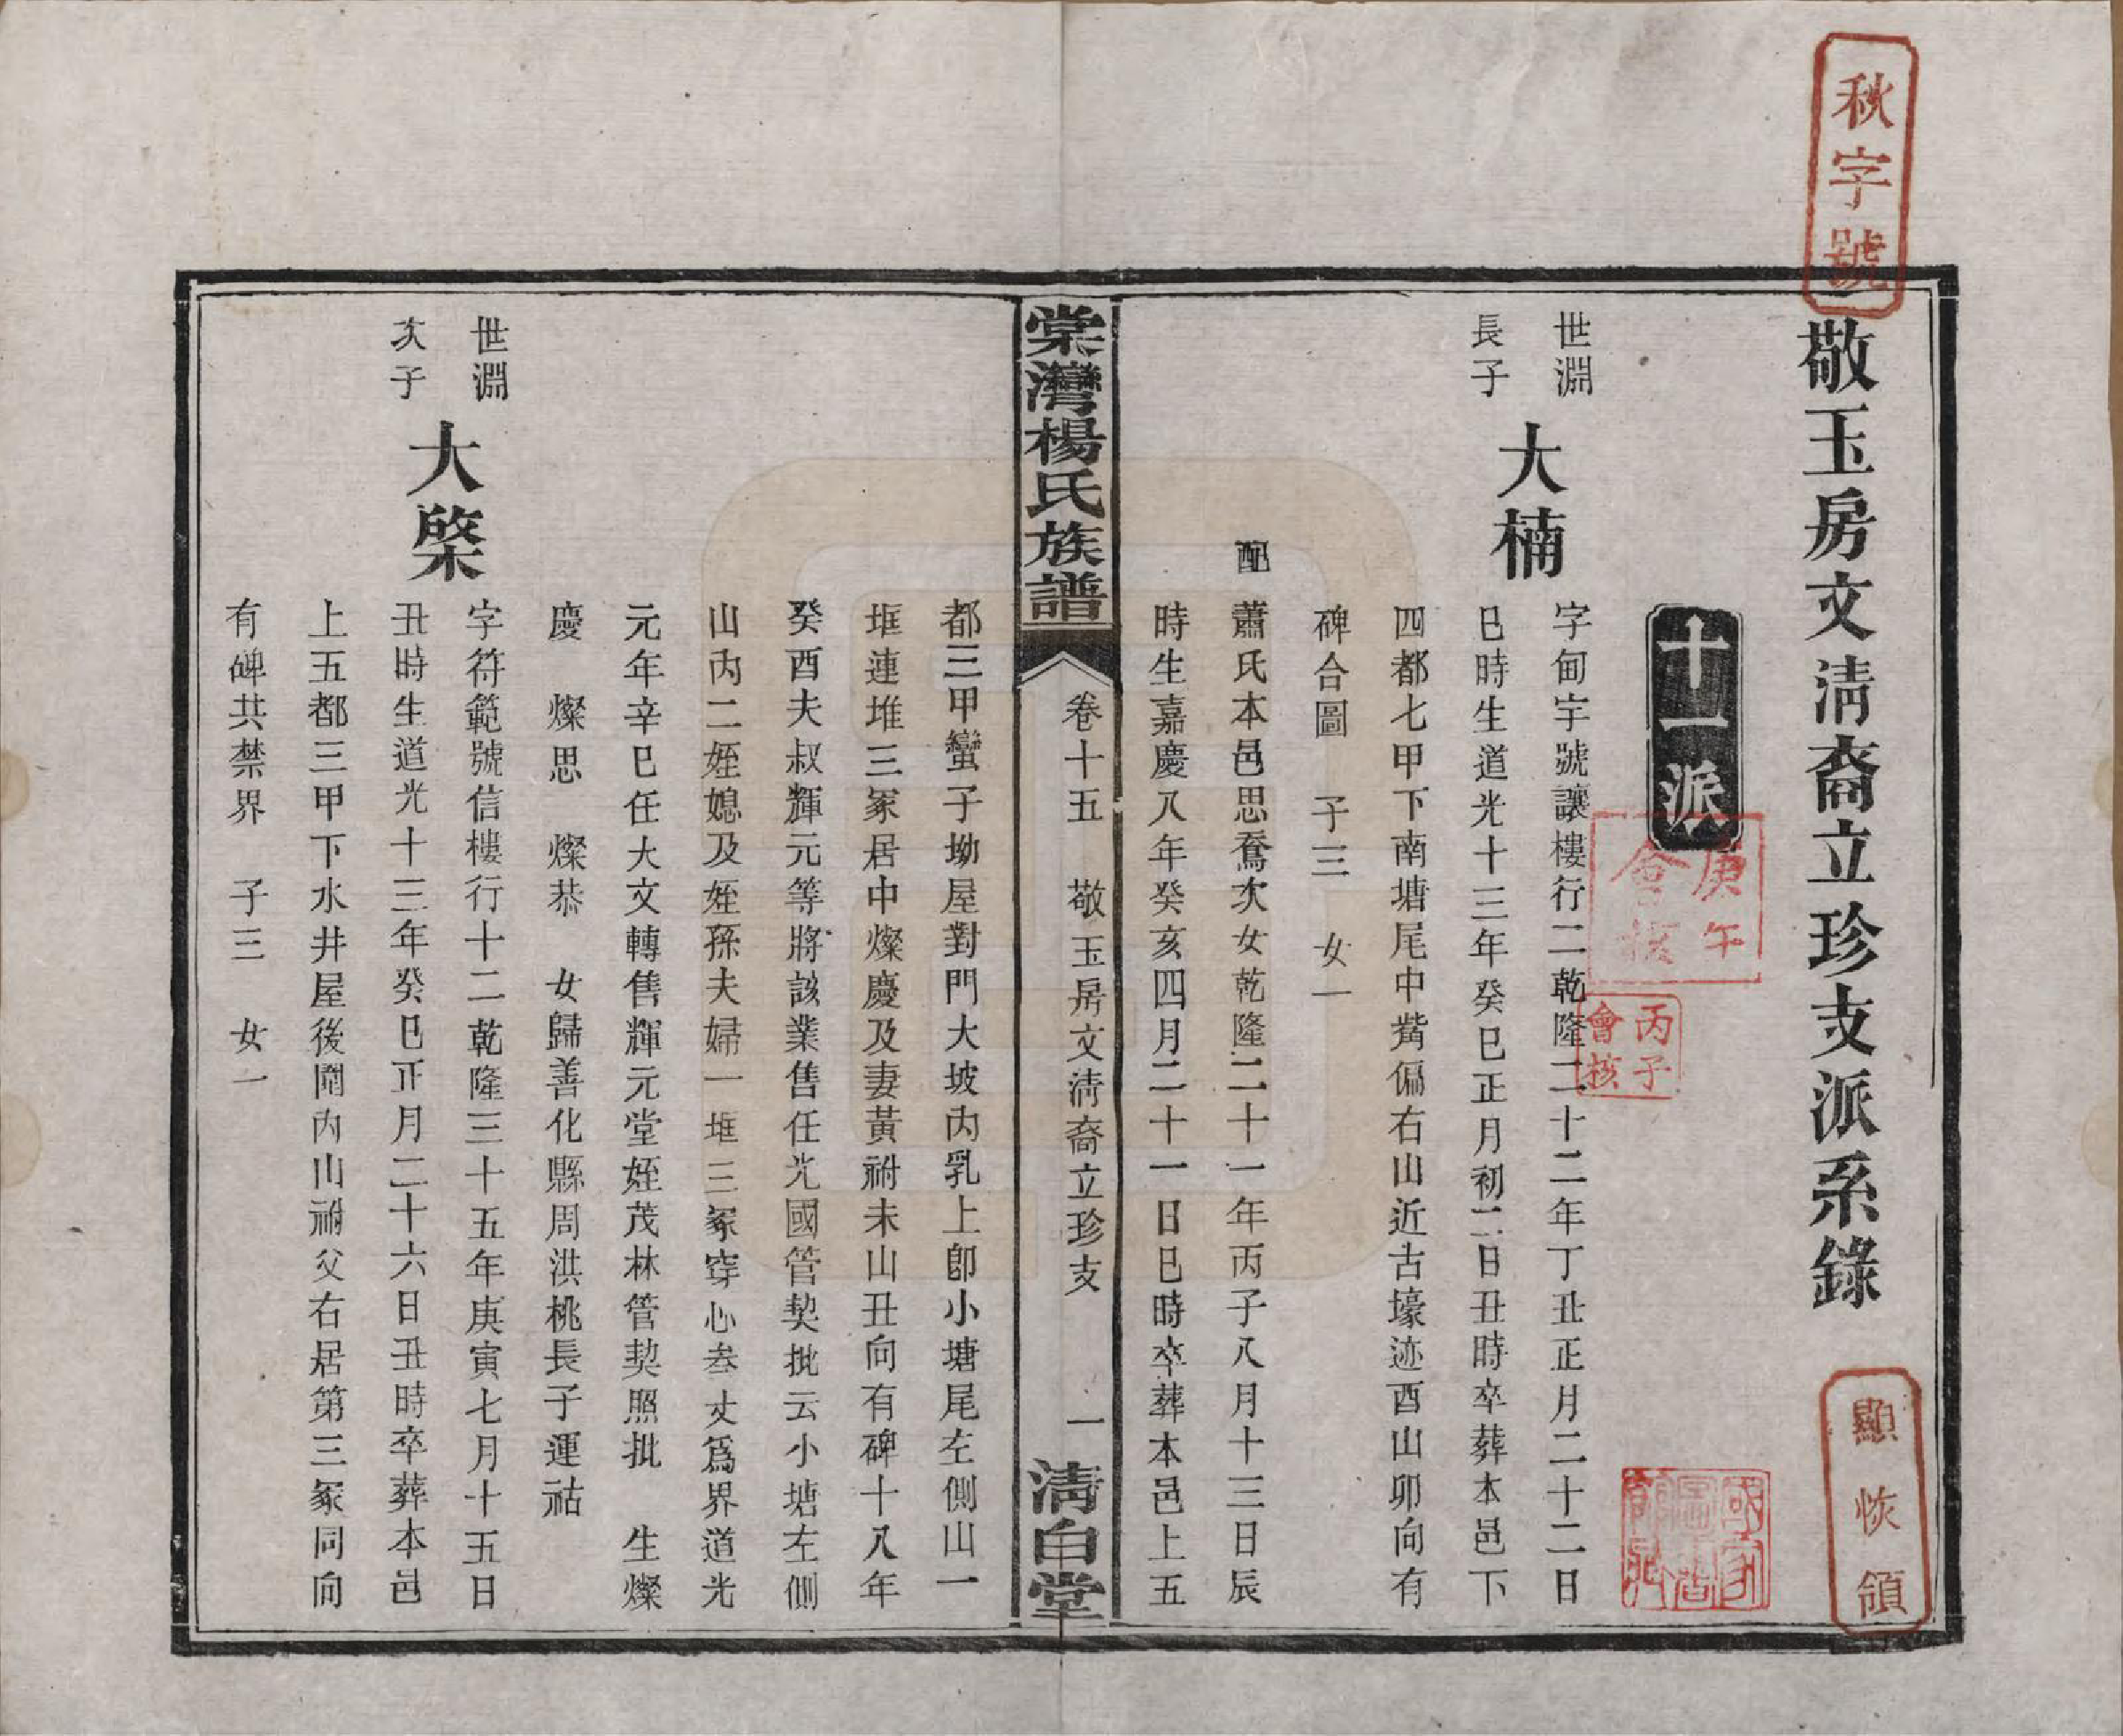 秋字號
敬玉房文淸裔立珍支派系錄
顯恢領
十一派
庚午
會核
丙子
會核
世淵
長子
大楠
字甸宇號讓樓行二乾隆二十二年丁丑正月二十二日
巳時生道光十三年癸巳正月初二日丑時卒葬本邑下
四都七甲下南塘尾中觜偏右山近古壕迹酉山卯向有
碑合圖　子三　女一
配　蕭氏本邑思鶱次女乾隆二十一年丙子八月十三日辰
時生嘉慶八年癸亥四月二十一日巳時卒葬本邑上五
棠灣楊氏族譜
卷十五　敬玉房文淸裔立珍支　一
淸白堂
都三甲蠻子坳屋對門大坡內乳上卽小塘尾左側山一
堐連堆三冢居中燦慶及妻黃祔未山丑向有碑十八年
癸酉夫叔輝元等將該業售任光國管契批云小塘左側
山內二姪媳及姪孫夫婦一堐三冢穿心叁丈爲界道光
元年辛巳任大文轉售輝元堂姪茂林管契照批　生燦
慶　燦思　燦恭　女歸善化縣周洪桃長子運祜
世淵
次子
大棨
字符範號信樓行十二乾隆三十五年庚寅七月十五日
丑時生道光十三年癸巳正月二十六日丑時卒葬本邑
上五都三甲下水井屋後閫內山祔父右居第三冢同向
有碑共禁界　子三　女一